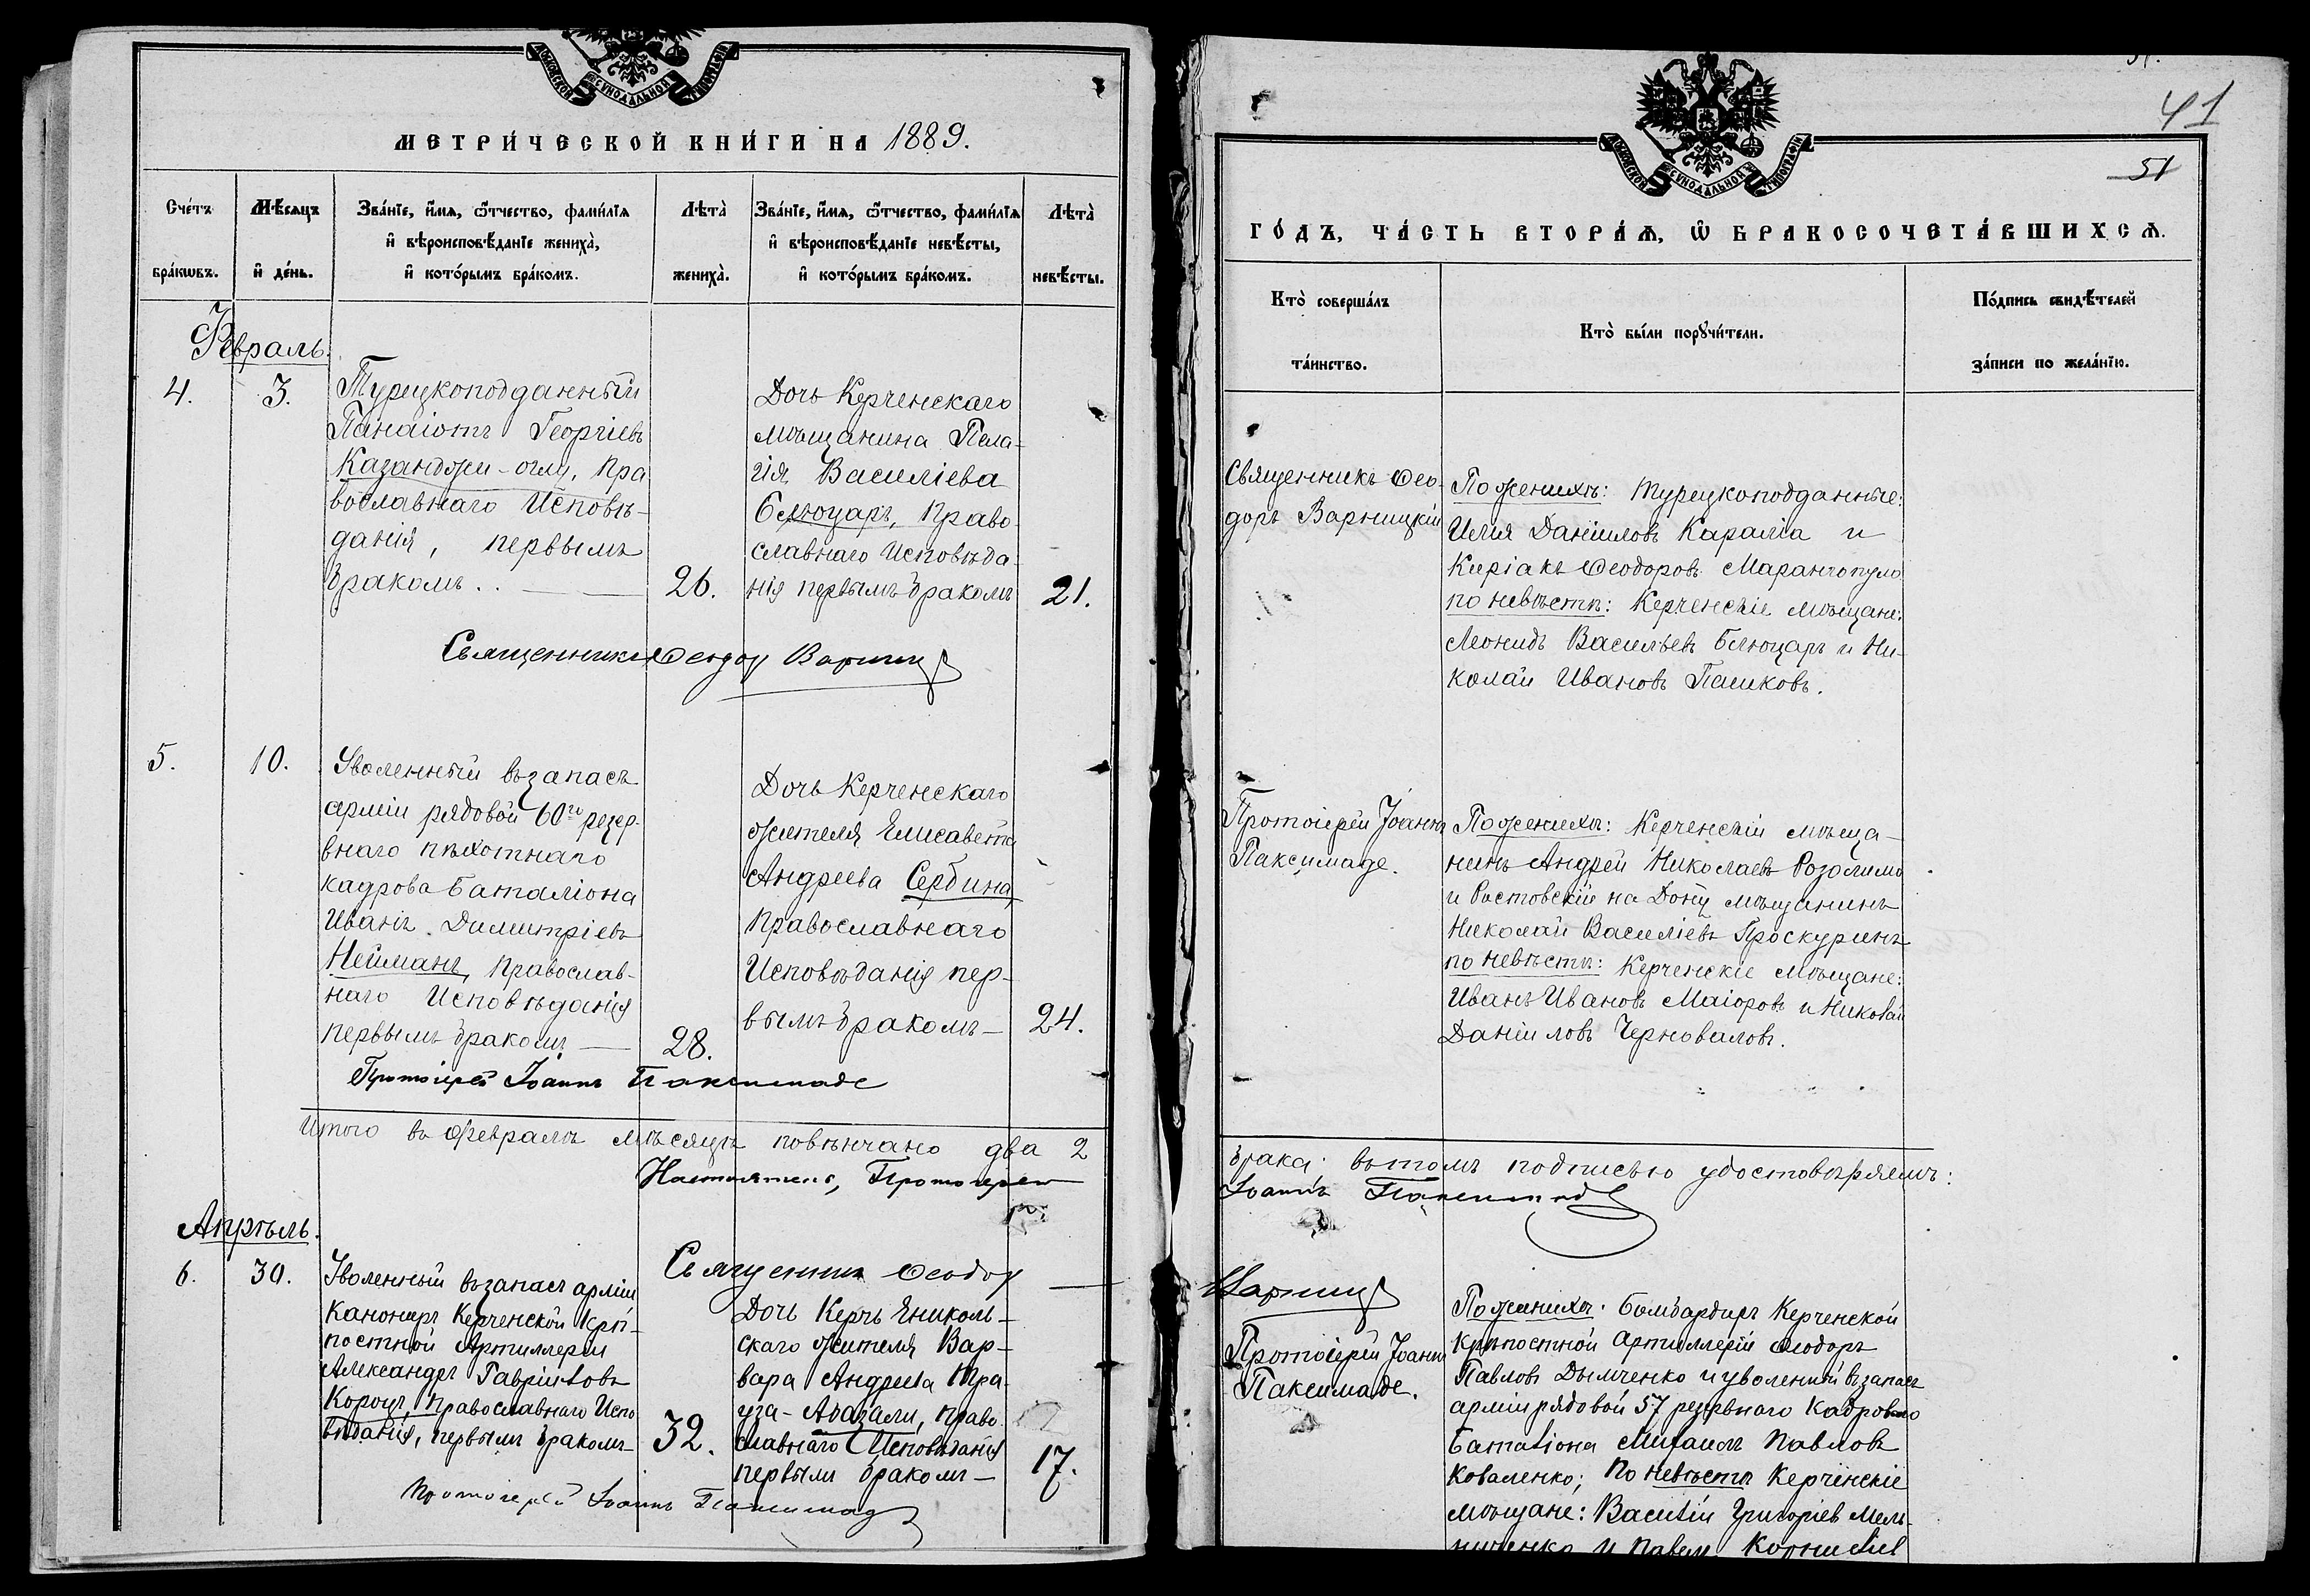 МОСКОВСКОЙ СѴНОДАЛЬНОЙ ТИПОГРАФІИ
МЕТРИ́ЧЕСКОЙ КНИ́ГИ НА 1889.
Сче́тъ
бра́кѡвъ.
Мѣ́сяцъ
и҆ де́нь.
Зва́нїе, и҆́мя, ѻ҆́тчество, фами́лїя
и҆ вѣроисповѣ́данїе жениха̀,
и҆ кото́рымъ бра́комъ.
Лѣта̀
жениха̀.
Зва́нїе, и҆́мя, ѻ҆́тчество, фами́лїя
и҆ вѣроисповѣ́данїе невѣ́сты,
и҆ кото́рымъ бра́комъ.
Лѣта̀
невѣ́сты.
Февраль.
4.
3.
Турецкоподданный
Панаіотъ Георгіевъ
Казанджи-оглу, Пра
вославнаго Исповѣ-
данія, первымъ
бракомъ..
26.
Дочь Керченскаго
мѣщанина Пела-
гія Василіева
Белюцарь, Право
славнаго Исповѣда-
нія первымъ бракомъ
21.
Священникъ Ѳеодор Варниц
5.
10.
Уволенный въ запасъ
арміи рядовой 60го резер-
внаго пѣхотнаго
кадрова баталіона
Иванъ Димитріевъ
Нейманъ, Православ-
наго Исповѣданія
первымъ бракомъ
28.
Дочь Керченскаго
жителя Елисавета
Андреева Сербина,
Православнаго
Исповѣданія пер-
вымъ бракомъ
24.
Протоіерей Іоаннъ Паксимаде
Итого въ Февралѣ мѣсяцѣ повѣнчано два 2
Настоятель, Протоіерей
Апрѣль.
6.
30.
Священник Ѳеодор
Уволенный въ запас арміи
Канонеръ Керченской Крѣ-
постной Артиллеріи
Александръ Гавріиловъ
Короцъ, Православнаго Испо
вѣданія, первымъ бракомъ
32.
Дочь Керчь Ениколь-
скаго жителя Вар-
вара Андреева
уза-Авазали, Право-
славнаго Исповѣданія
первымъ бракомъ
17.
Протоіерей Іоаннъ Паксимад
41
51
МОСКОВСКОЙ СѴНОДАЛЬНОЙ ТИПОГРАФІИ
ГО́ДЪ, ЧА́СТЬ ВТОРА́Я, Ѡ҆ БРАКОСОЧЕТА́ВШИХСЯ.
Кто̀ соверша́лъ
та́инство.
Кто̀ бы́ли порꙋчи́тели.
По́дпись свидѣ́телей
за́писи по жела́нїю.
Священникъ Ѳео-
доръ Варницкій
По женихѣ: Турецкоподданные:
Илія Даніиловъ Каралія и
Киріакъ Ѳеодоровъ Маранчопуло
по невѣстѣ: Керченскіе мѣщане:
Леонидъ Васильевъ Белюцарь и Ни-
колай Ивановъ Пашковъ.
Протоіерей Іоаннъ
Паксимаде.
По женихѣ: Керченскій мѣща-
нинъ Андрей Николаевъ Розолимо
и Ростовскій на Дону мѣщанинъ
Николай Василіевъ Проскуринъ
по невѣстѣ: Керченскіе мѣщане:
Иванъ Ивановъ Маіоровъ и Николай
Даніиловъ Черновалов.
брака: въ томъ подписью удостовѣряемъ:
Іоаннъ Паксимаде
Варниц
Протоіерей Іоаннъ
Паксимаде.
По женихѣ: Бомбардиръ Керченской
Крѣпостной Артиллеріи Ѳеодоръ
Павловъ Дымченко и уволенный въ запасъ
арміи рядовой 57 резервнаго Кадроваго
Баталіона Михаилъ Павловъ
Коваленко; По невѣстѣ Керченскіе
мѣщане: Василій Григоріев Мель-
ниченко и Павелъ Корнилі